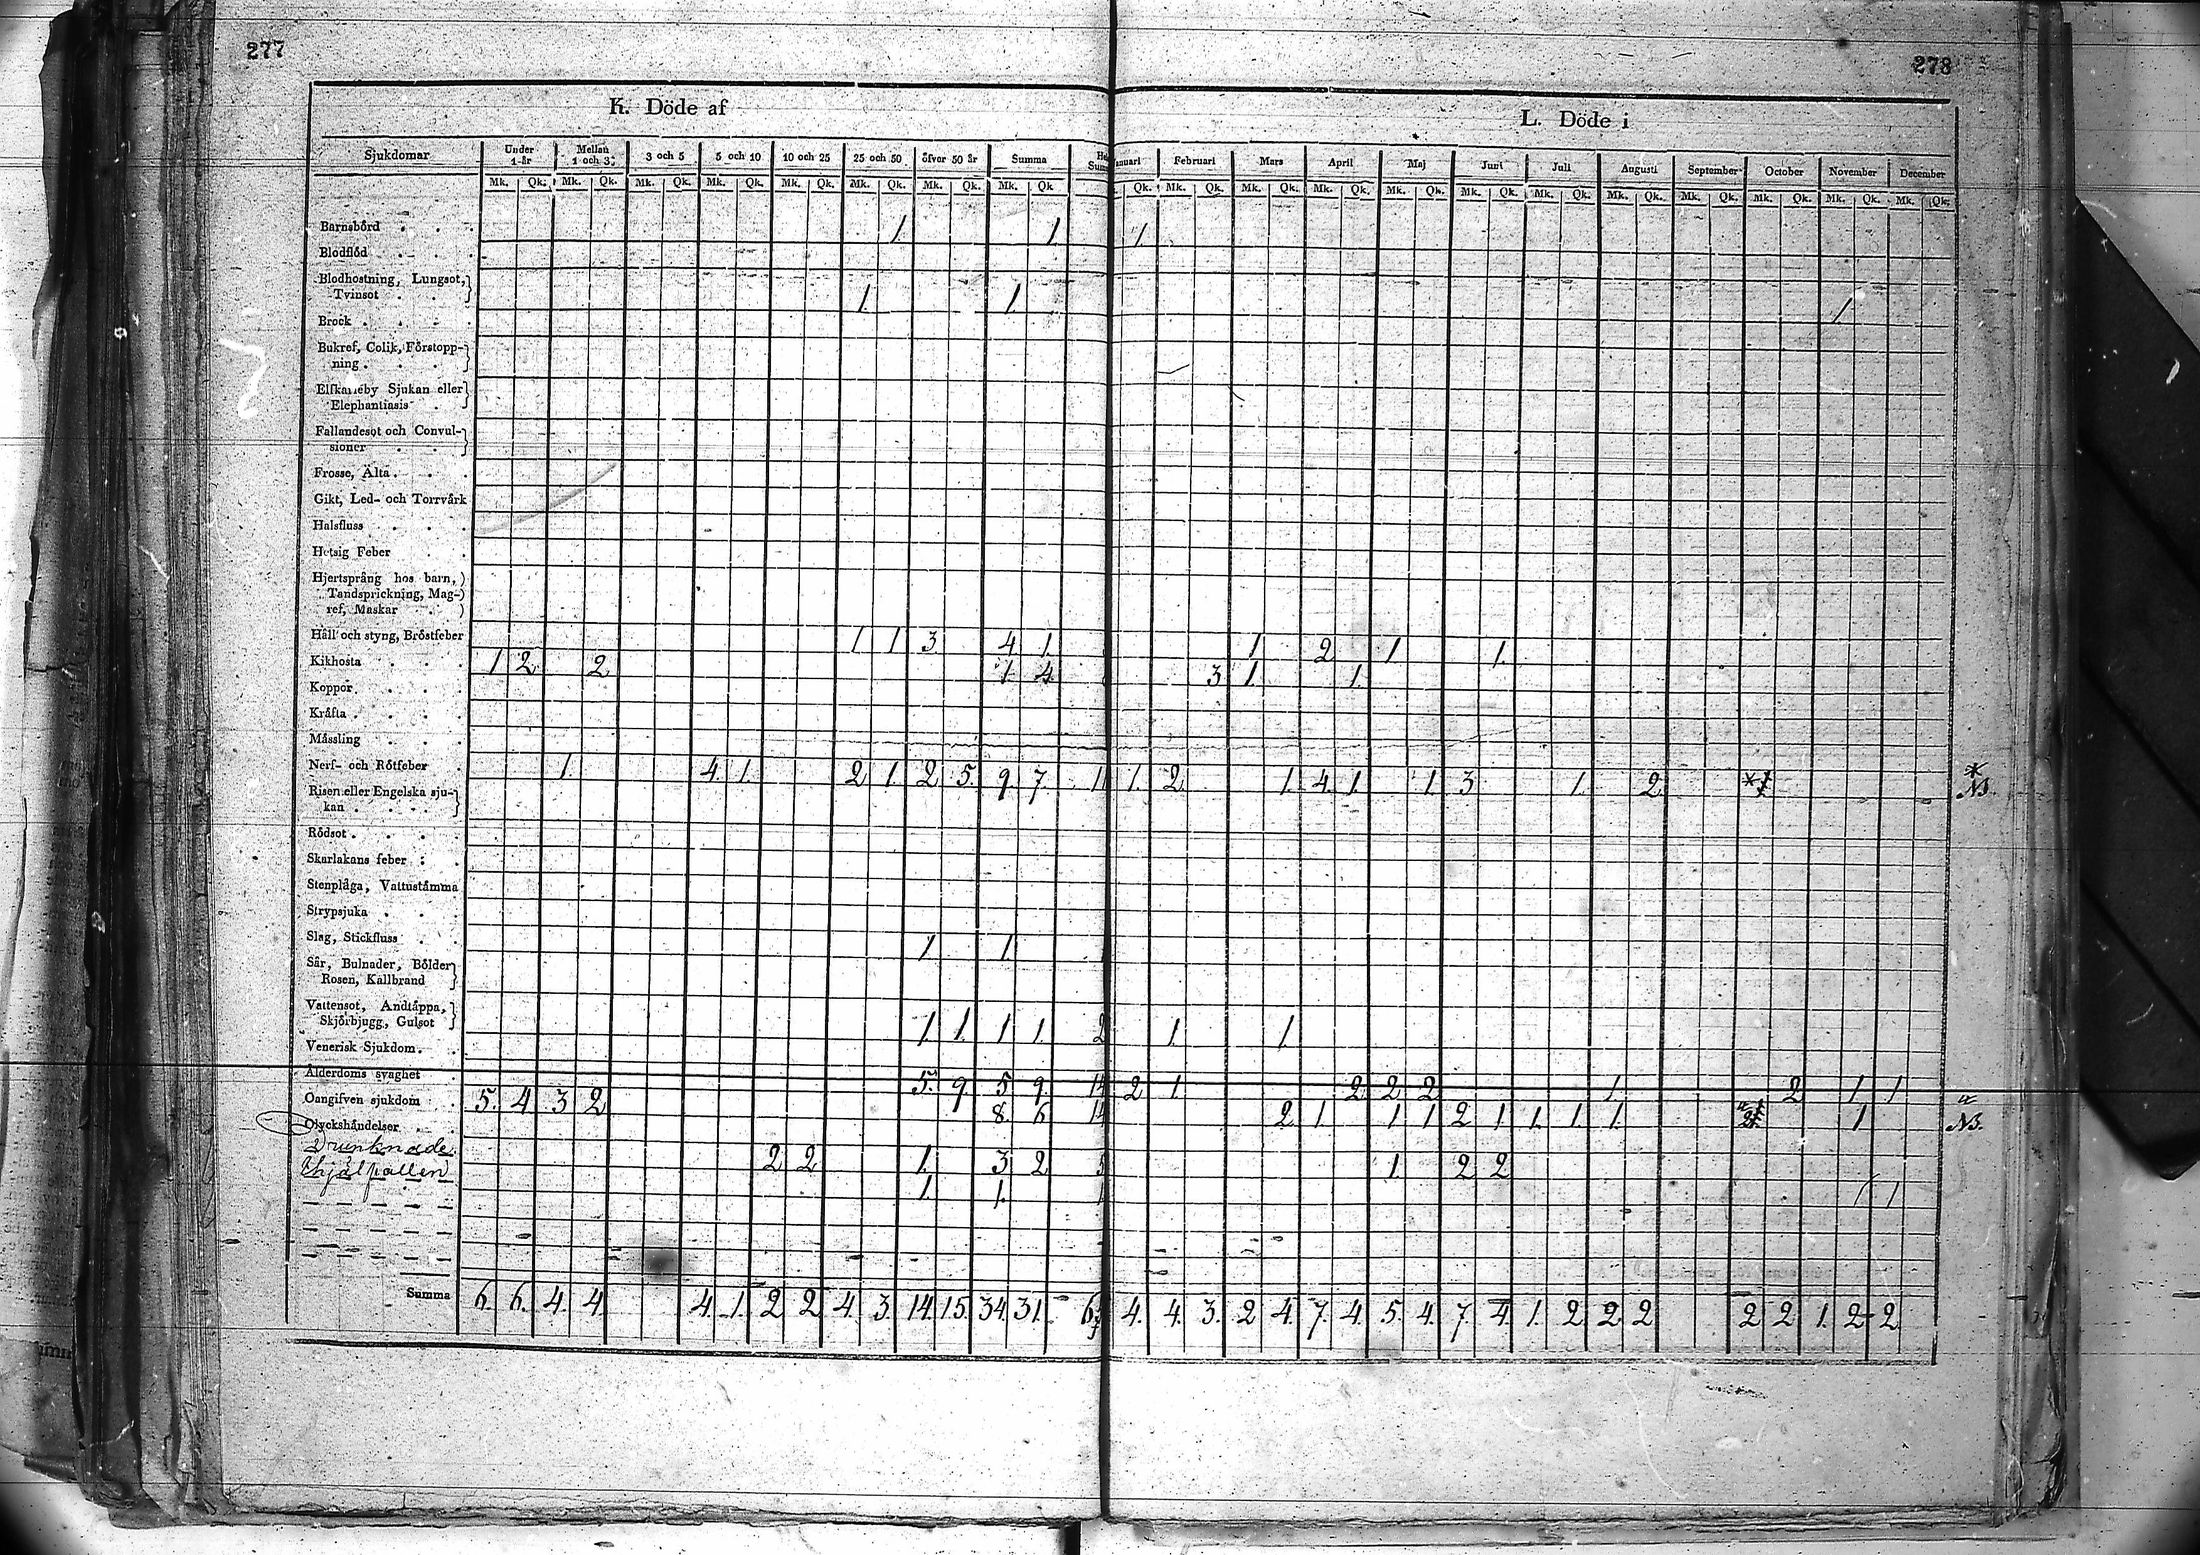 277
278
K. Döde af
L. Döde i
Sjukdomar Under 1 år Mellan 1 och 3 3 och 5 5 och 10 10 och 25 25 och 50 öfver 50 år Summa
Februari Mars April Maj Juni Juli Augusti September October November December
Mk. Qk. Mk. Qk. Mk. Qk. Mk. Qk. Mk. Qk. Mk. Qk. Mk. Qk. Mk. Qk
Qk. Mk. Qk. Mk. Qk. Mk. Qk. Mk. Qk. Mk. Qk. Mk. Qk. Mk. Qk. Mk. Qk. Mk. Qk. Mk. Qk. Mk. Qk.
Barnsbörd 1 1 1
Blodflöd
Blodhostning, Lungsot,
Tvinsot 1 1 1
Brock
Bukref, Colik, Förstopp-
ning
Elfkarleby Sjukan eller
Elephantiasis
Fallandesot och Convul-
sioner
Frosse, Älta
Gikt, Led- och Torrvärk
Halsfluss
Hetsig Feber
Hjertsprång hos barn,
Tandsprickning, Mag-
ref, Maskar
Håll och styng, Bröstfeber 1 1 3 4 1 1 2 1 1
Kikhosta 1 2 2 1 4 3 1 1
Koppor
Kräfta
Mässling
Nerf- och Rötfeber 1 4 1 2 1 2 5 9 7 1 1 2 1 4 1 1 3 1 2 * * NB.
Risen eller Engelska sju-
kan
Rödsot
Skarlakans feber
Stenplåga, Vattustämma
Strypsjuka
Slag, Stickfluss 1 1
Sår, Bulnader, Bölder
Rosen, Kallbrand
Vattensot, Andtäppa,
Skjörbjugg, Gulsot 1 1 1 1 2 1 1
Venerisk Sjukdom
Ålderdoms svaghet 5 9 5 9 14 2 1 2 2 2 1 2 1 1
Oangifven sjukdom 5 4 3 2 8 6 14 2 1 1 1 2 1 1 1 1 1 NB.
Olyckshändelser
Drunknade 2 2 1 3 2 5 1 2 2
Ihjälfallen 1 1 1 1
Summa 6 6 4 4 4 1 2 2 4 3 14 15 34 31 4 4 3 2 4 7 4 5 4 7 4 1 2 2 2 2 2 1 2 2